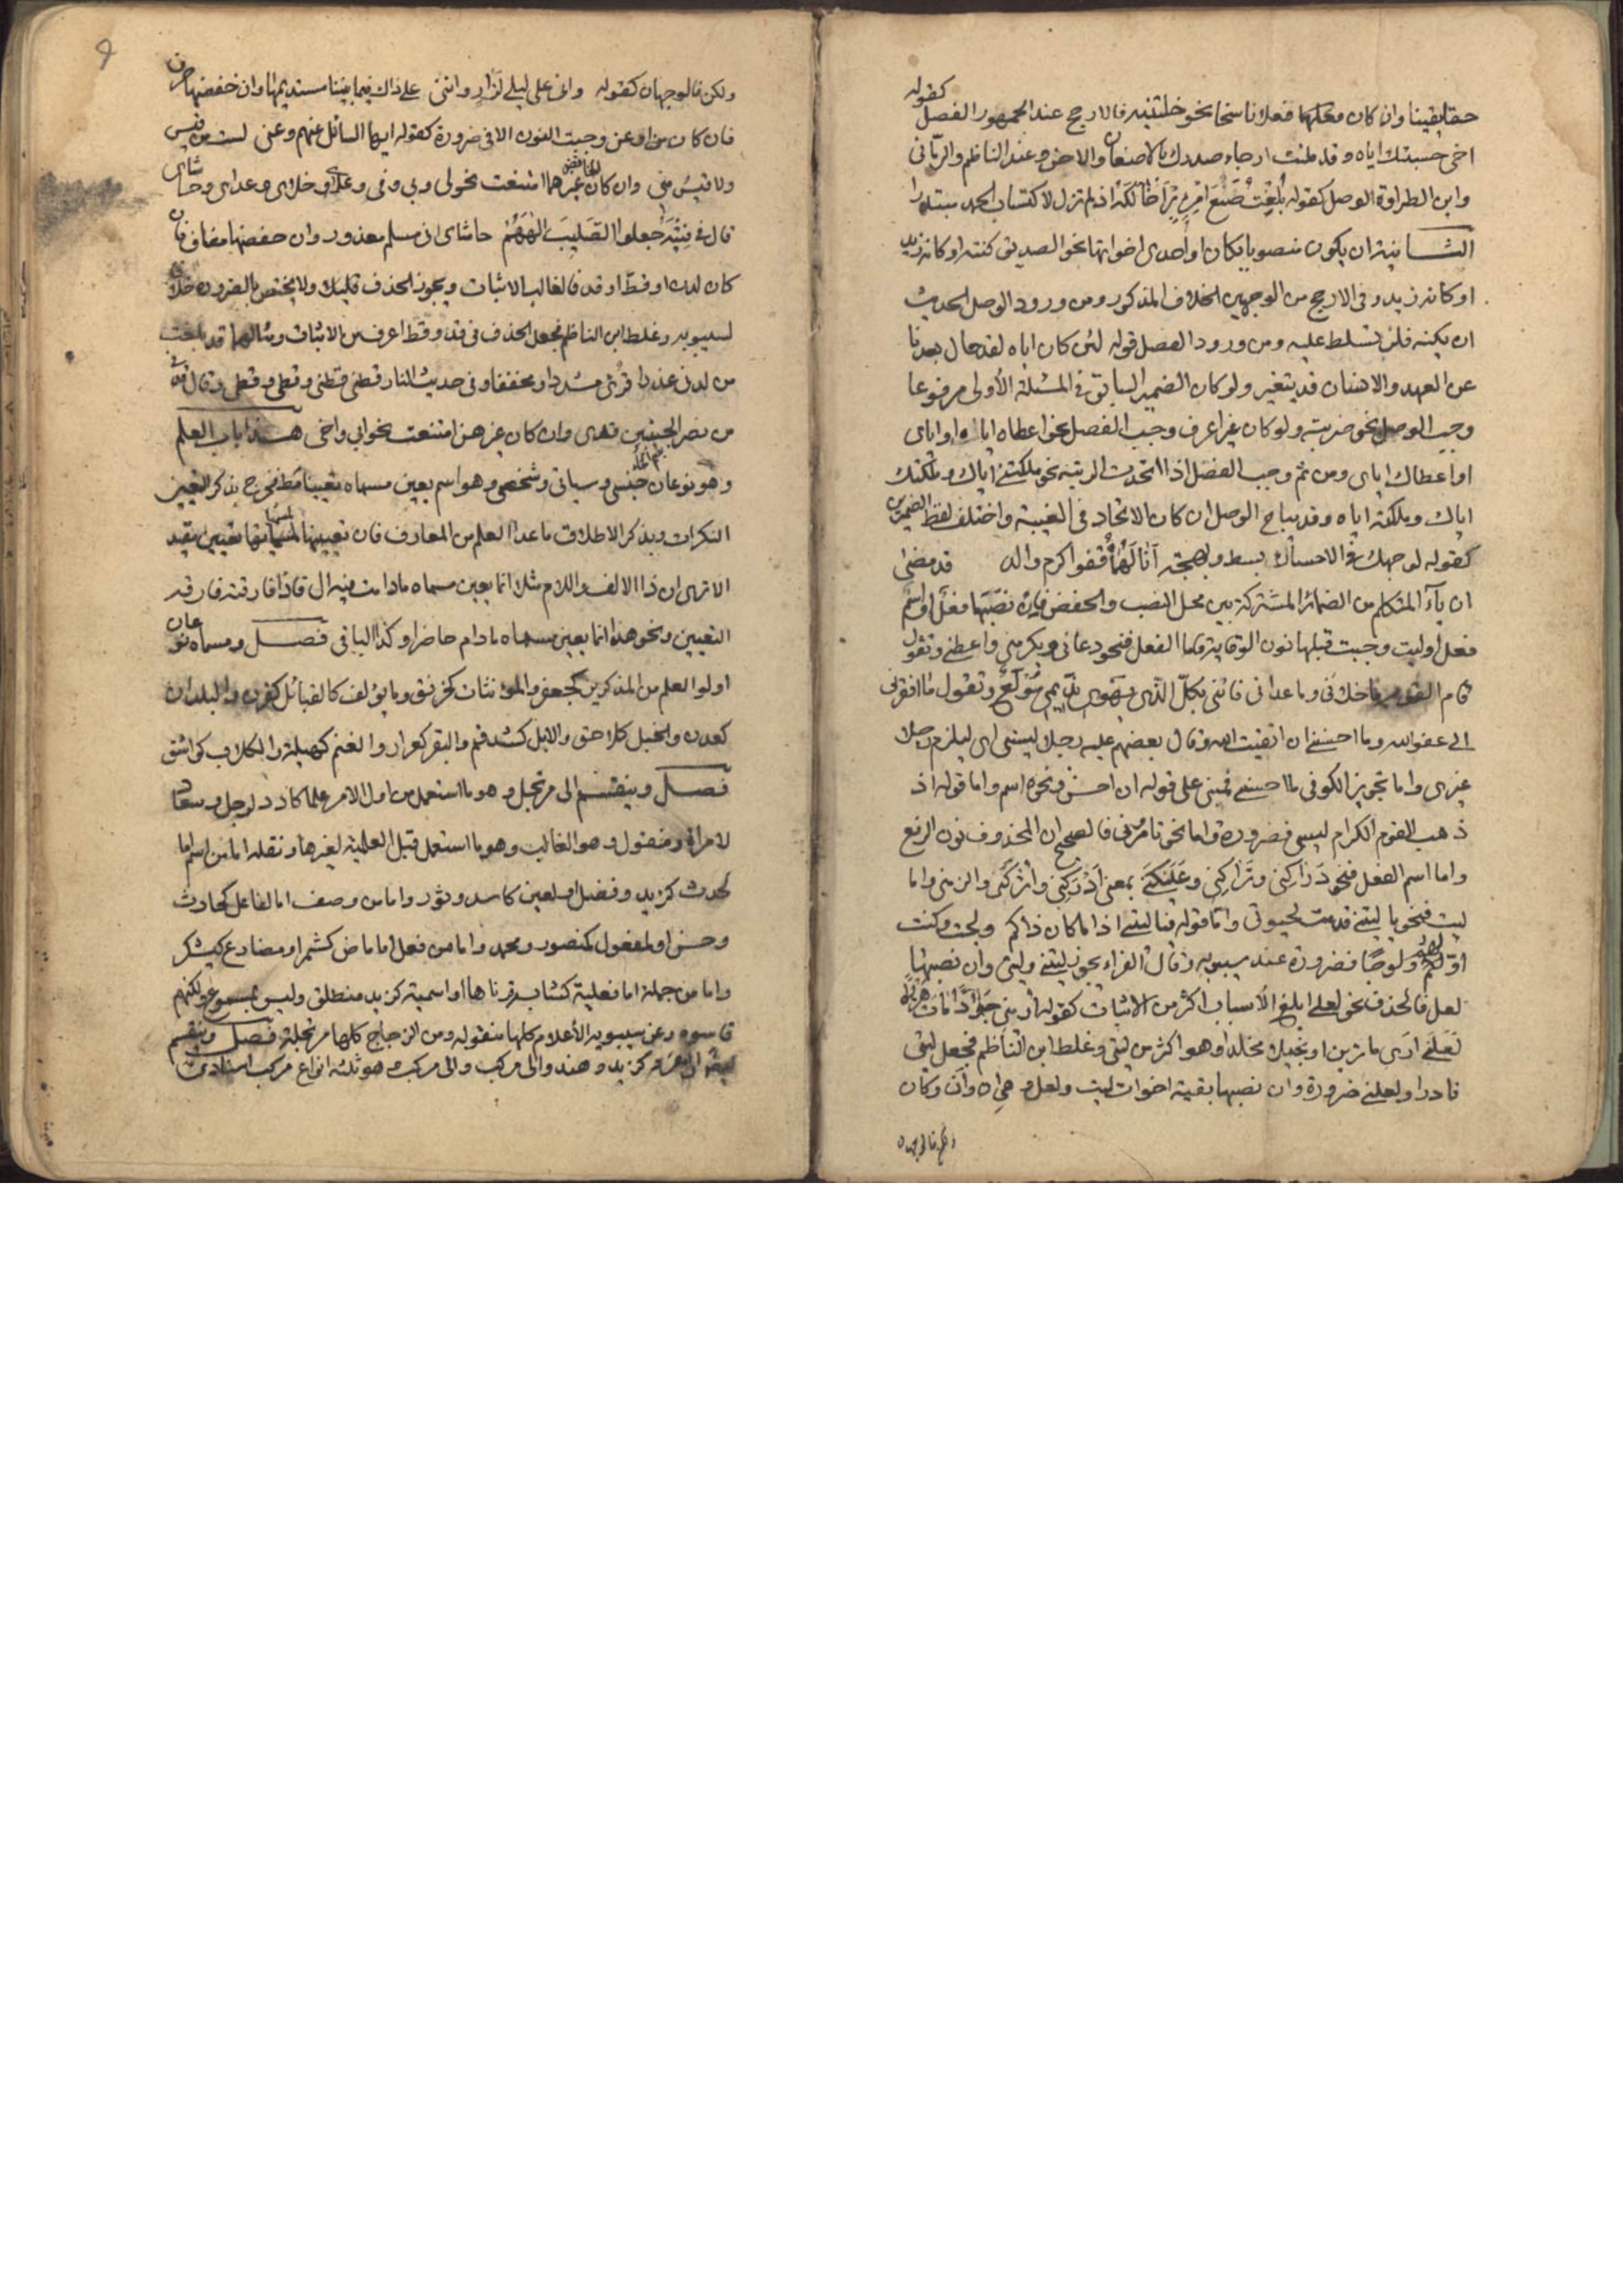 حقا يقينا وان كان محلهما فعلا ناسخا نحو خلتنيه فالارجح عند الجمهور الفصل كقوله
اخى حسبتك اياه وقد ملئت ارجاء صدرك بالاضغان والاحن وعند الناظم والرمانى
وابن الطراوة الوصل كقوله بُلِّغْتُ صُنْعَ امْرِئٍ بَرٍّ اخالكه اذ لم تزل لاكتساب الحمد مبتدرا
الثانية ان يكون منصوبا بكان او احدى اخواتها نحو الصديق كنته او كانه زيد
او كانه زيد وفى الارجح من الوجهين الخلاف المذكور ومن ورود الوصل الحديث
ان يكنه فلن تسلط عليه ومن ورود الفصل قوله لئن كان اياه لقد حال بعدنا
عن العهد والانسان قد يتغير ولو كان الضمير السابق فى المسئلة الأولى مرفوعا
وجب الوصل نحو ضربته ولو كان غير اعرف وجب الفصل نحو اعطاه اياك او اياى
او اعطاك اياى ومن ثم وجب الفصل اذا اتحدت الرتبة نحو ملكتنى اياى وملكتك
اياك وملكته اياه وقد يباح الوصل ان كان الاتحاد فى الغيبة واختلف لفظ الضميرين
كقوله لوجهك فى الاحسان بسط وبهجة انالهماه قفو اكرم والد فصل مضى
ان ياء المتكلم من الضمائر المشتركة بين محلى النصب والخفض فان نصبها فعل او اسم
فعل او ليت وجبت قبلها نون الوقاية فاما الفعل فنحو دعانى ويكرمنى واعطنى وتقول
قام القوم ما خلانى وما عدانى فاننى بكل الذى يهوى نديمى مُوْلَعُ وتقول ما افقرنى
الى عفو الله وما احسننى ان اتقيت الله وقال بعضهم عليه رجلا ليسنى اى ليلزم رجلا
غيرى واما تجويز الكوفى ما احسنى فمبنى على قوله ان احسن ونحوه اسم واما قوله اذ
ذهب القوم الكرام ليسى فضرورة واما نحو تأمرونى فالصحيح ان المحذوف نون الرفع
واما اسم الفعل فنحو دَرَاكِنى وتَراكِنى وعَلَيْكَنى بمعنى ادركنى واتركنى والزمنى واما
ليت فنحو يا ليتنى قدمت لحيوتى واما قوله فيا ليتى اذا ما كان ذاكم ولجت وكنت
اولهم ولوجًا فضرورة عند سيبويه وقال الفراء يجوز ليتنى وليتى وان نصبها
لعل فالحذف نحو لعلى ابلغ الاسباب اكثر من الاثبات كقوله ارينى جوادًا مات هزلا
لعلنى ارى ما ترين او بخيلا مخلدا وهو اكثر من ليتى وغلط ابن الناظم فجعل ليتى
نادرا ولعلنى ضرورة وان نصبها بقية اخوات ليت ولعل وهى ان وأن وكان
ولكن فالوجهان
ولكن فالوجهان كقوله وانى على ليلى لزار واننى على ذاك فيما بيننا مستديمها وان خفضها حرف
فان كان من او عن وجبت النون الا فى ضرورة كقوله ايها السائل عنهم وعنى لست من قيس
ولا قيسُ منى وان كان غيرهما امتنعت نحو لى وبى وفى وعلى وخلاى وعداى وحاشاى
قال فى فتية جعلوا الصليب الههم حاشاى انى مسلم معذور وان خفضها مضاف فان
كان لدن او قط او قد فالغالب الاثبات ويجوز الحذف قليلا ولا يختص بالضرورة خلافا
لسيبويه وغلط ابن الناظم فجعل الحذف فى قد وقط اعرف من الاثبات ومثالهما قد بلغت
من لدنى عذرا قرئ مشددا ومخففا وفى حديث النار قطنى قطنى وقطى وقطى وقال قدنى
من نصر الخبيبين قدى وان كان غيرهن امتنعت نحو ابى واخى هذا باب العلم
وهو نوعان جنسى وسياتى وشخصى وهو اسم يعين مسماه تعيينا مطلقا فخرج بذكر التعيين
النكرات وبذكر الاطلاق ما عدا العلم من المعارف فان تعيينها لمسمياتها تعيين مقيد
الا ترى ان ذا الالف واللام مثلا انما يعين مسماه ما دامت فيه ال فاذا فارقته فارقه
التعيين ونحو هذا انما يعين مسماه ما دام حاضرا وكذا الباقى فصل ومسماه نوعان
اولوا العلم من المذكرين كجعفر والمؤنثات كخرنق وما يؤلف كالقبائل كقرن والبلدان
كعدن والخيل كلاحق والابل كشدقم والبقر كعرار والغنم كهيلة والكلاب كواشق
فصل وينقسم الى مرتجل وهو ما استعمل من اول الامر علما كادد لرجل وسعاد
لامراة ومنقول وهو الغالب وهو ما استعمل قبل العلمية لغيرها ونقله اما من اسم اما
لحدث كزيد وفضل او لعين كاسد وثور واما من وصف اما لفاعل كحارث
وحسن او لمفعول كمنصور ومحمد واما من فعل اما ماض كشمر او مضارع كيشكر
واما من جملة اما فعلية كشاب قرناها او اسمية كزيد منطلق وليس بمسموع ولكنهم
قاسوه وعن سيبويه الأعلام كلها منقوله وعن الزجاج كلها مرتجلة فصل وينقسم
ايضا الى مفرد كزيد وهند والى مركب وهو ثلثة انواع مركب اسنادى